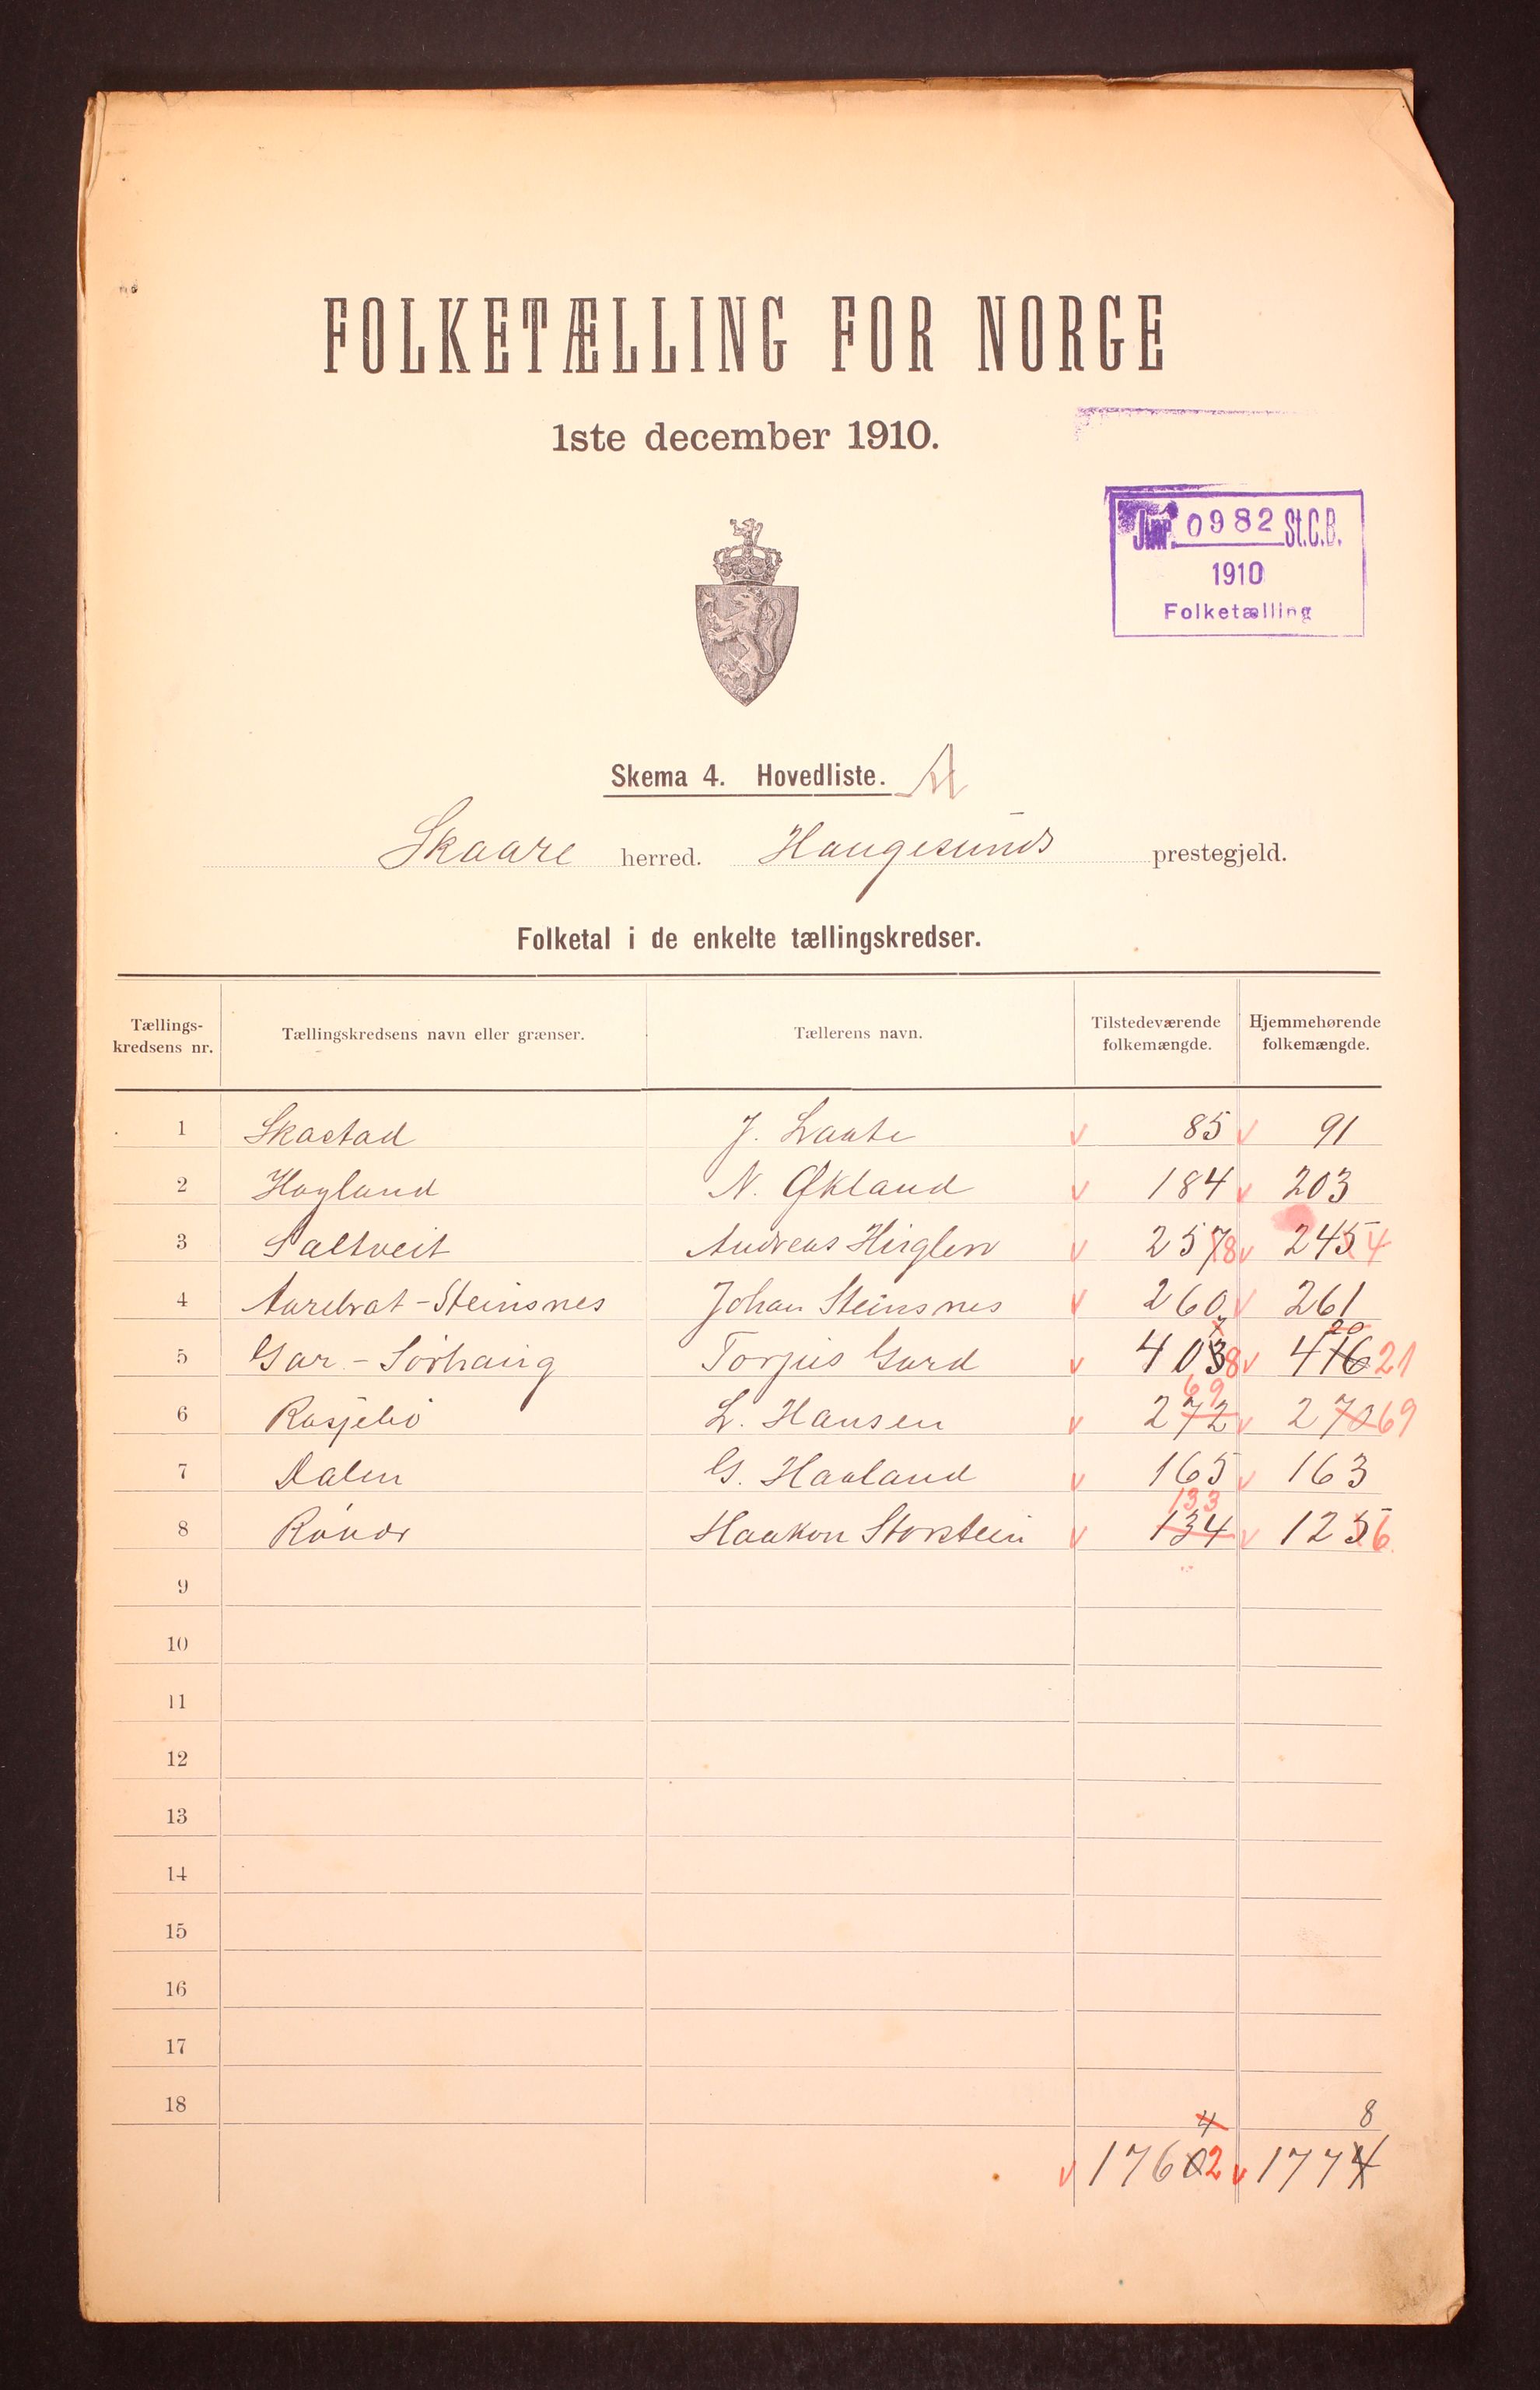 FOLKETÆLLING FOR NORGE
1ste december 1910.
Jnr. 0982 St.C.B.
1910
Folketælling
Skema 4. Hovedliste.
Skaare herred. Haugesunds prestegjeld.
Folketal i de enkelte tællingskredser.
Tællings-kredsens nr. Tællingskredsens navn eller grænser. Tællerens navn. Tilstedeværende folkemængde. Hjemmehørende folkemængde.
1 Skaatad J. v 85 v 91
2 Hagland N. Økland v 184 v 203
3 Saltveit Andreas v 257 8 v 245 4
4 Aarebrot-Steinsnes Johan Steinsnes v 260 v 261
7 20
5 Gar-Sörhaug Torjus Gard v 403 8 v 416 21
69
6 L. Hansen v 272 v 270 69
7 Dalen G. Haaland v 165 v 163
133
8 Röver Haakon Storstein v 134 v 125 6
9
10
11
12
13
14
15
16
17
18
4 8
v 1760 2 v 1774